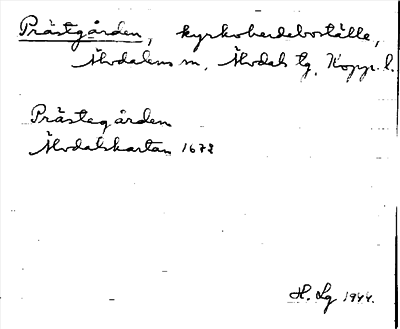 Prästgården, kyrkoherdeboställe,
Älvdalens sn, Älvdals tg, Kopp. l.
Prästegården
Älvdalskartan 1678
H. Lg 1944.